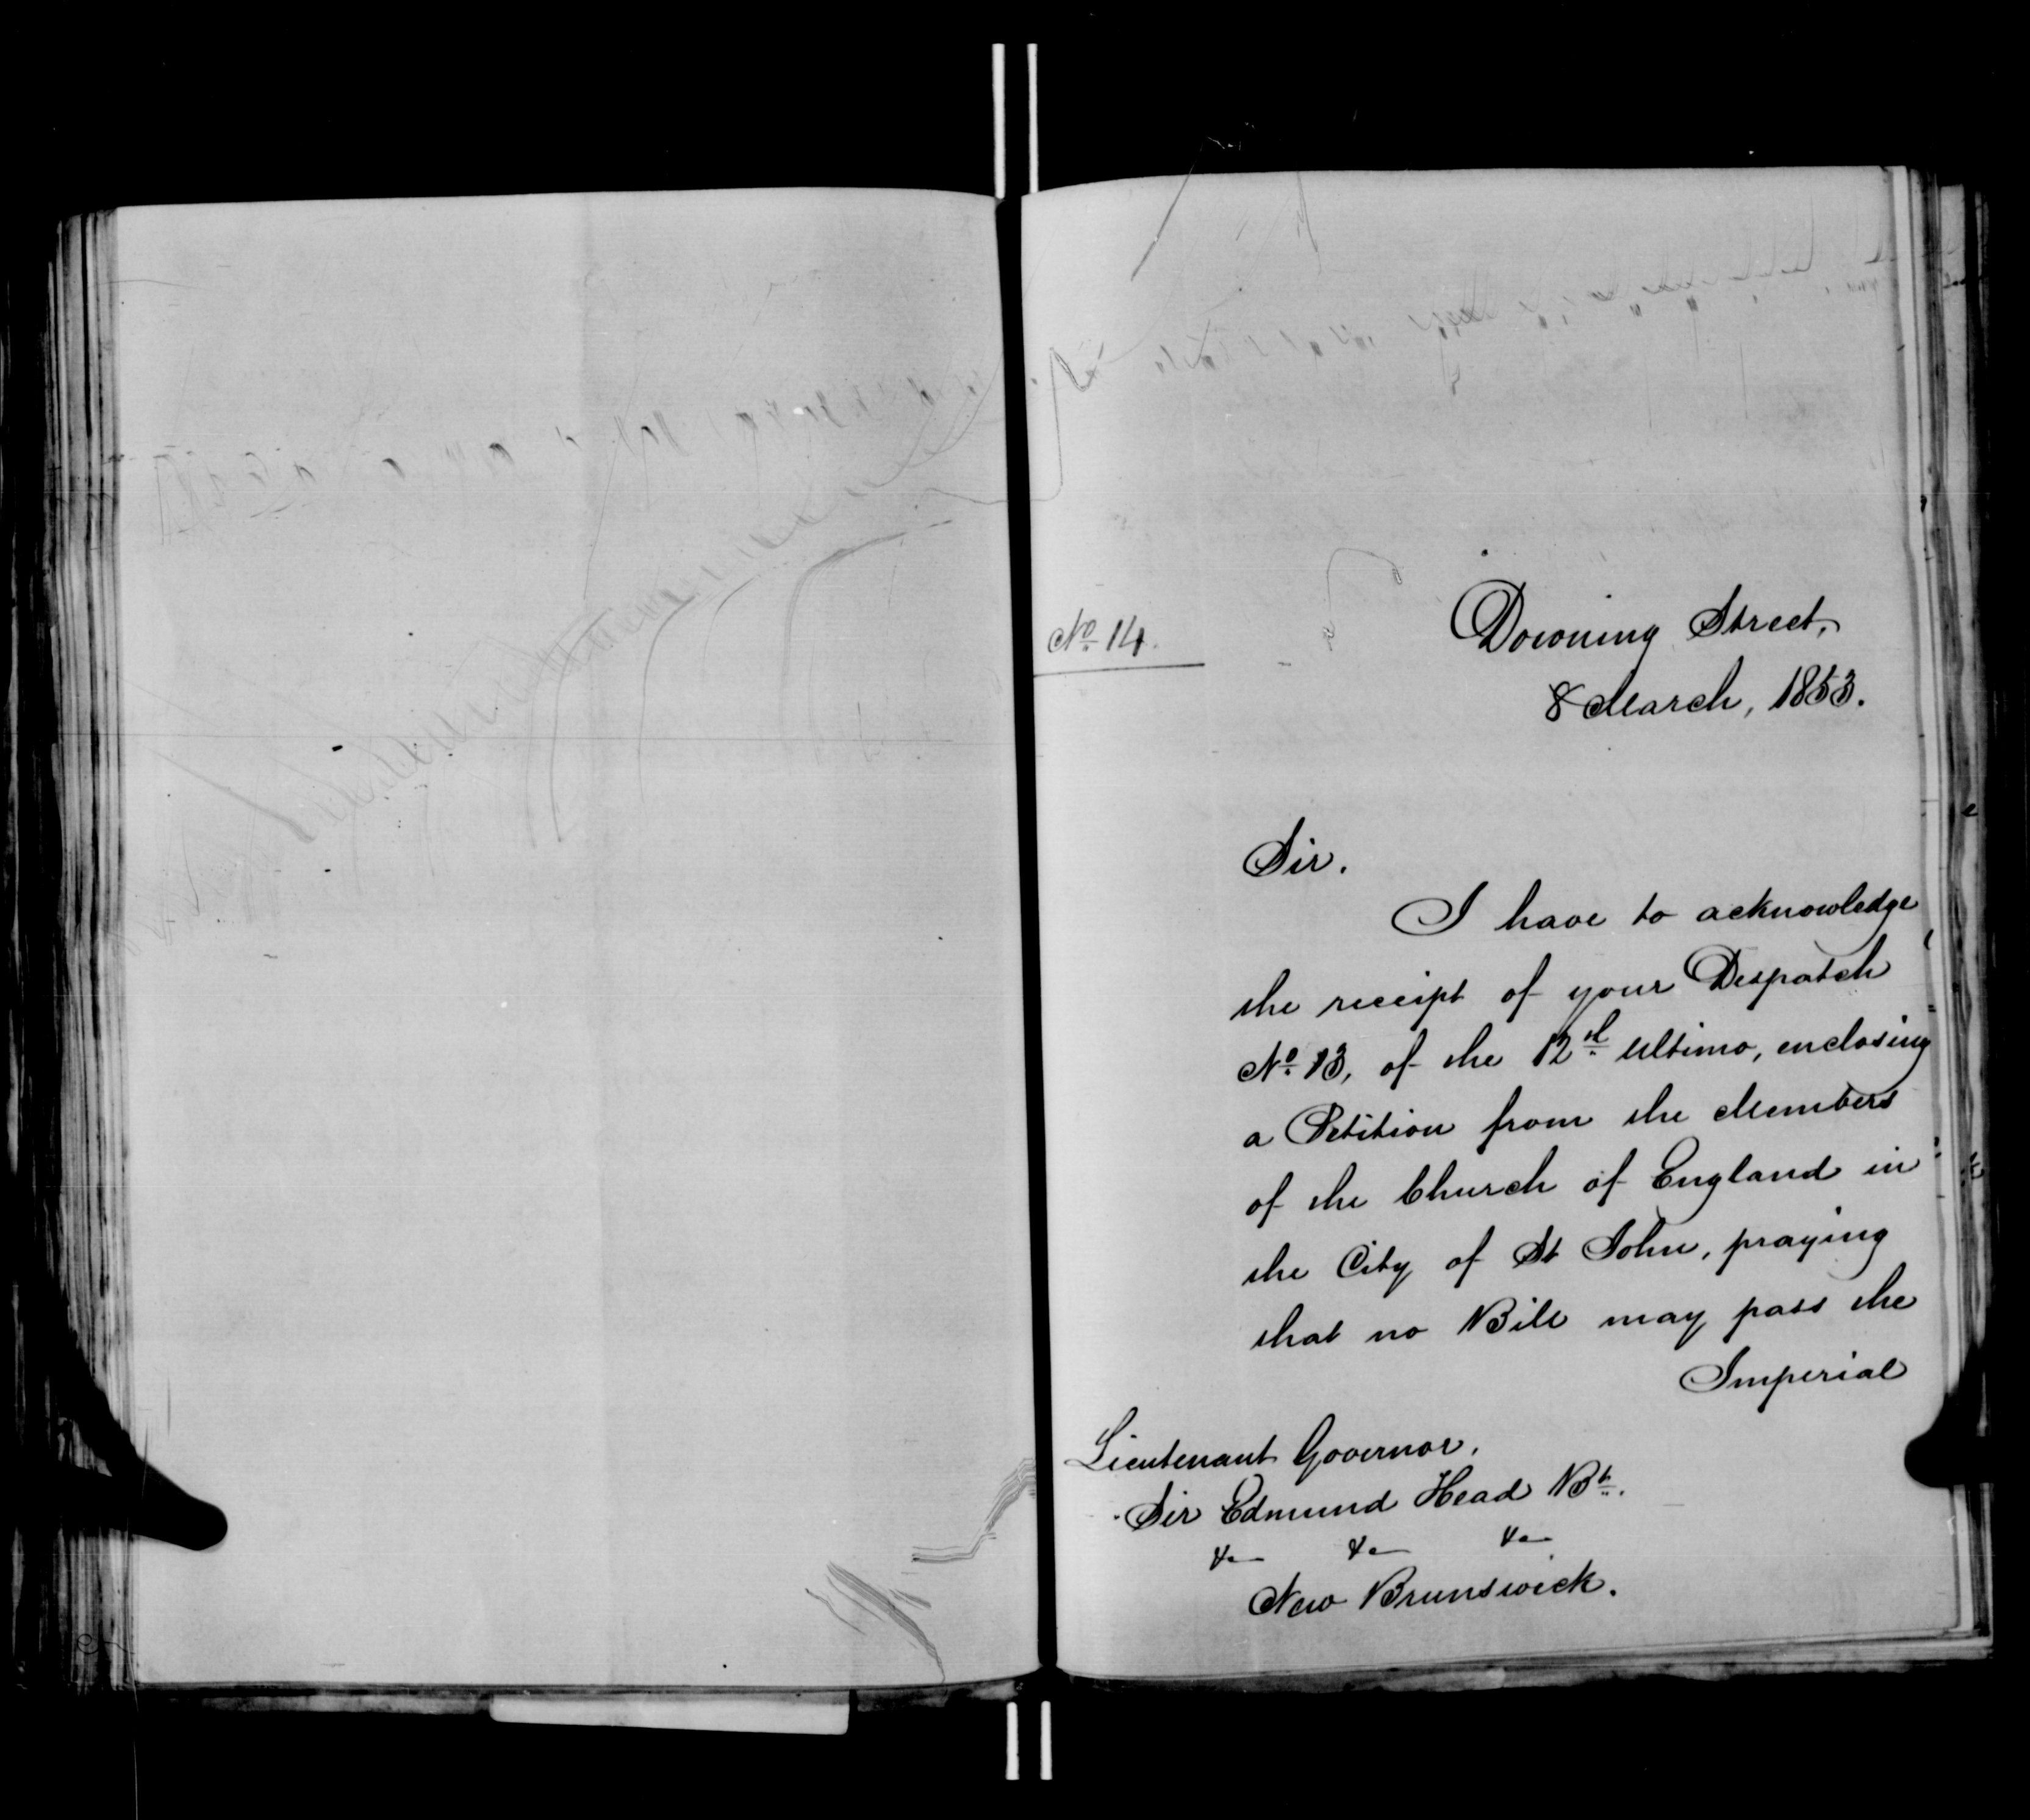 No. 14.
Downing Street,
8 March, 1853.
Sir.
I have to acknowledge
the receipt of your Despatch
No. 13, of the 12th Ultimo, enclosing
a Petition from the Members
of the Church of England in
the City of St John, praying
that no Bill may pass the
Imperial
Lieutenant Governor.
Sir Edmund Head Bt.
&c &c &c
New Brunswick.